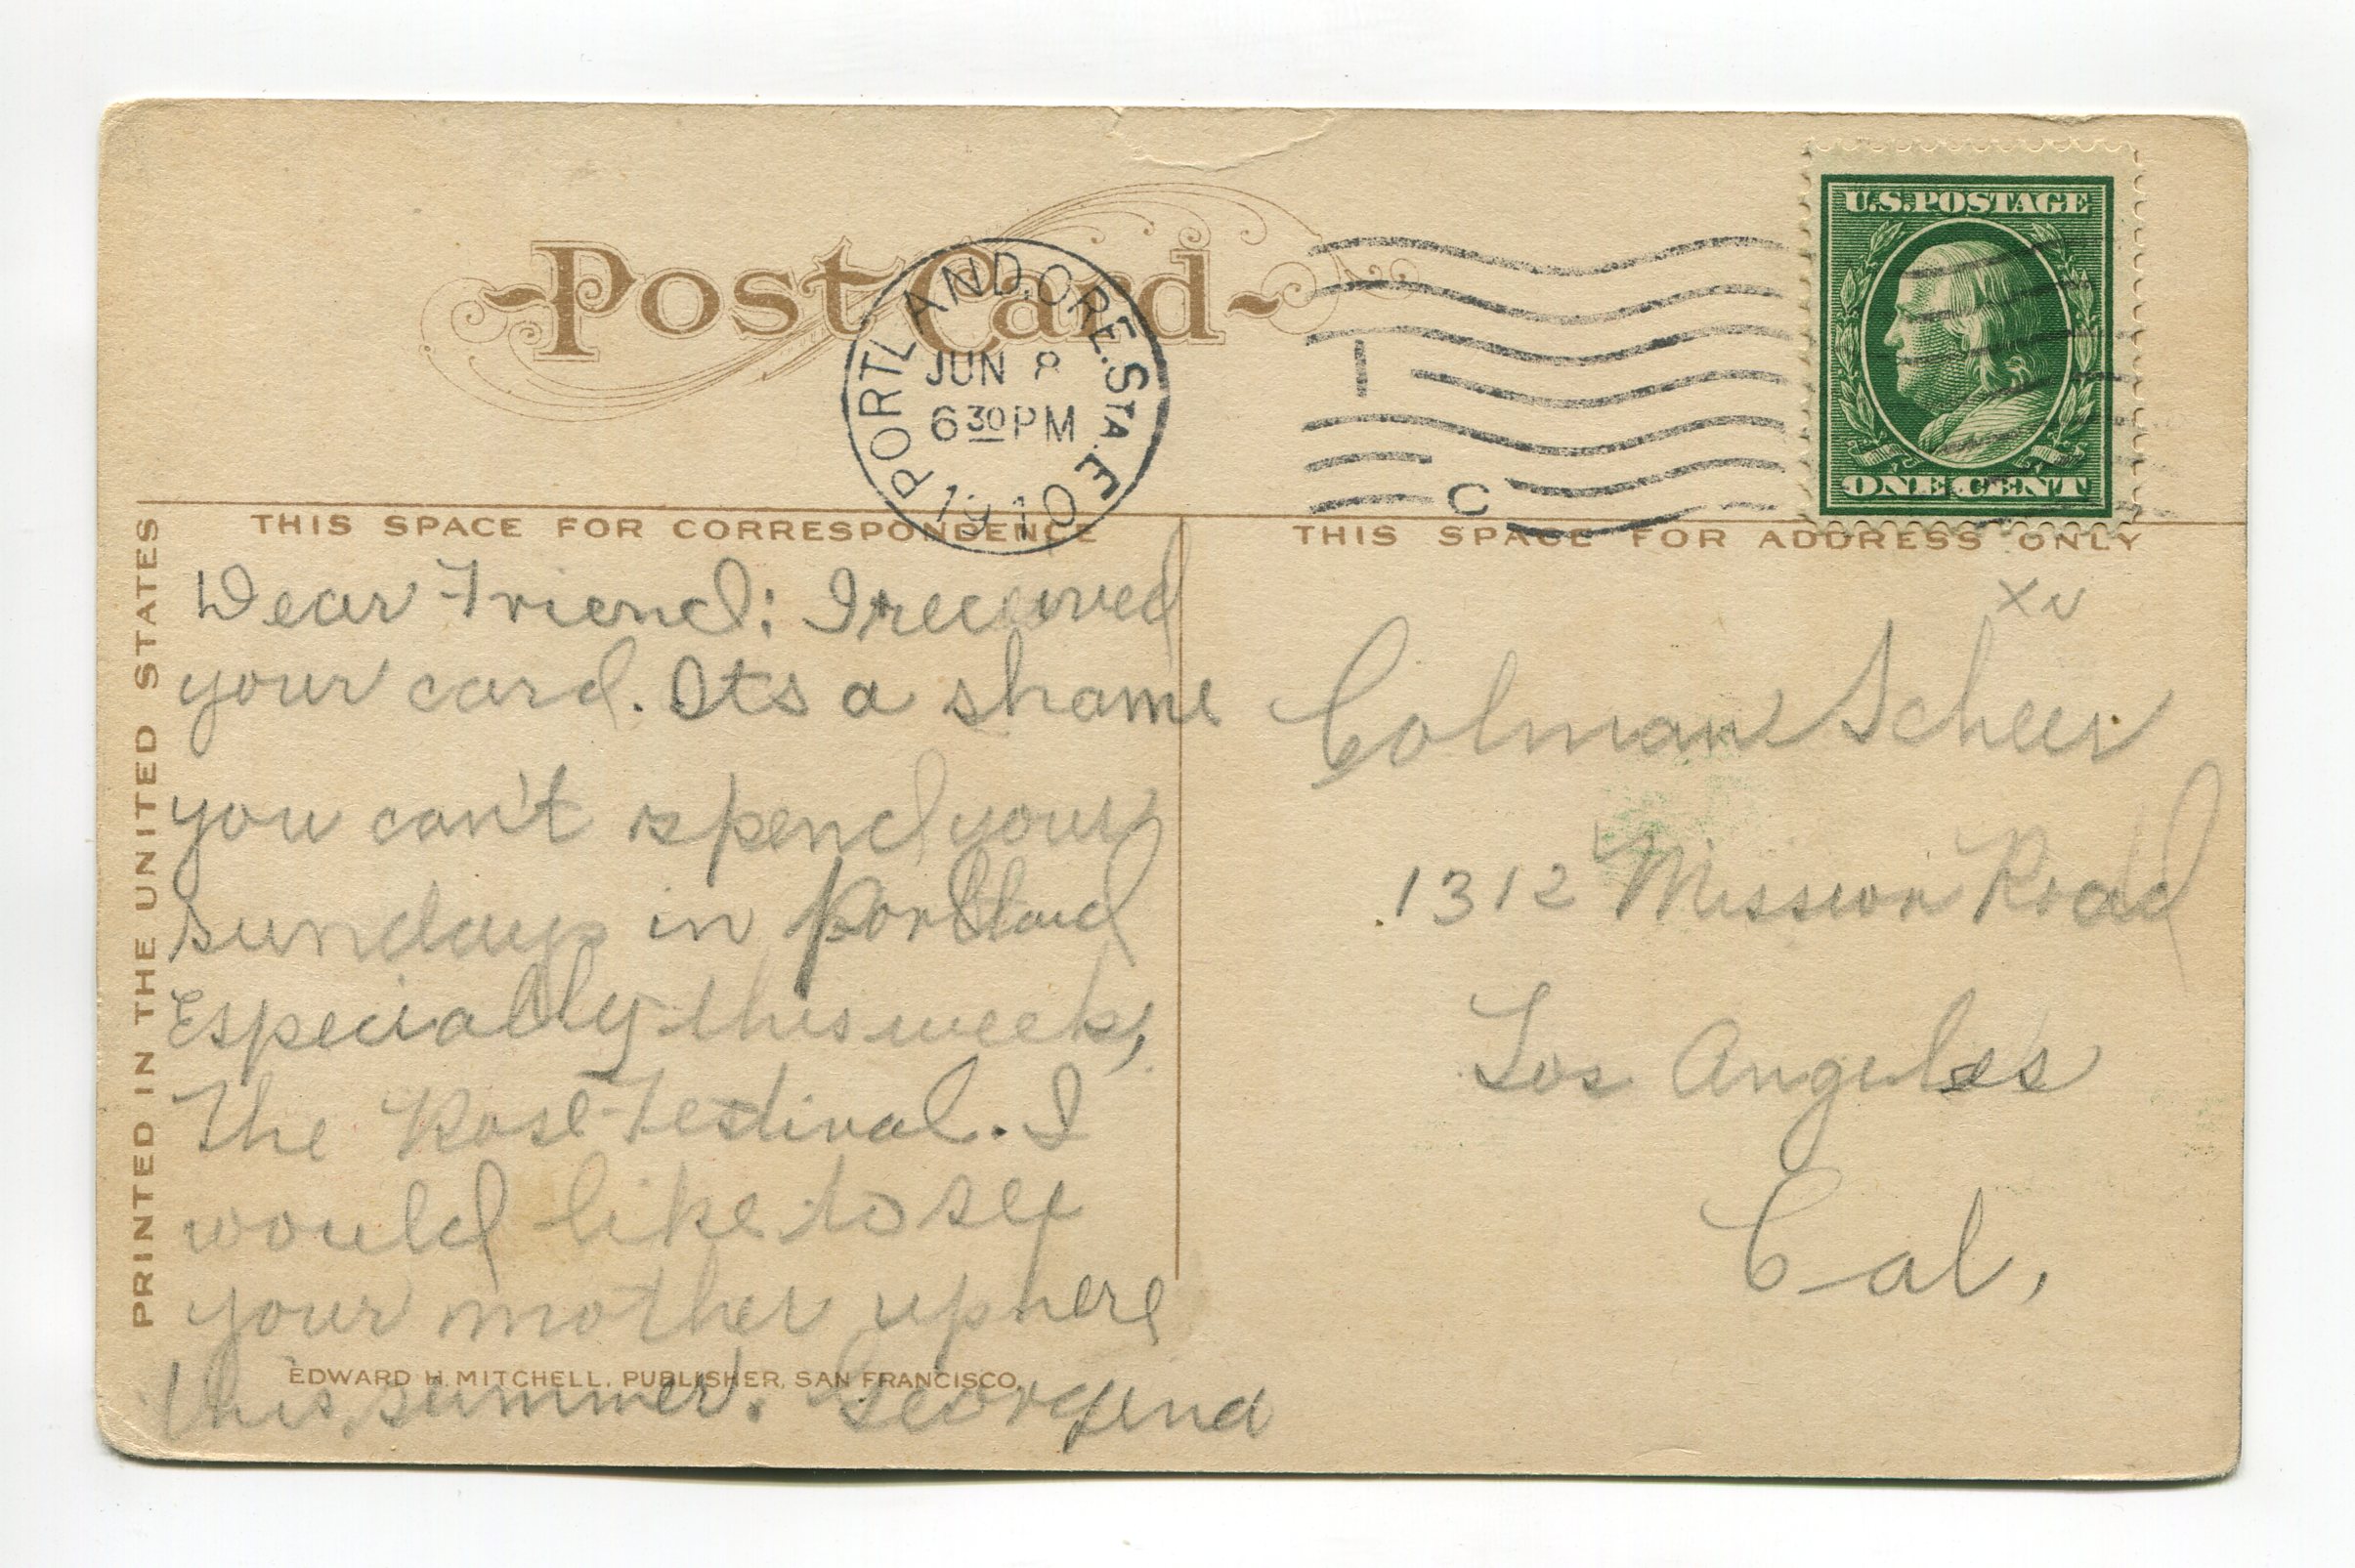 Post Card
PORTLAND, ORE. STA. E.
JUN 8
6 30 PM
1910
1
C
U.S. POSTAGE
ONE CENT
PRINTED IN THE UNITED STATES
THIS SPACE FOR CORRESPONDENCE
Dear Friend: I received
your card. Its a shame
you can't spend your
sundays in Portland
Especially this week,
The Rose Festival. I
would like to see
your mother up here
this summer. Georgena
EDWARD H. MITCHELL, PUBLISHER, SAN FRANCISCO.
THIS SPACE FOR ADDRESS ONLY
Colman Scheer
1312 Mission Road
Los Angeles
Cal,